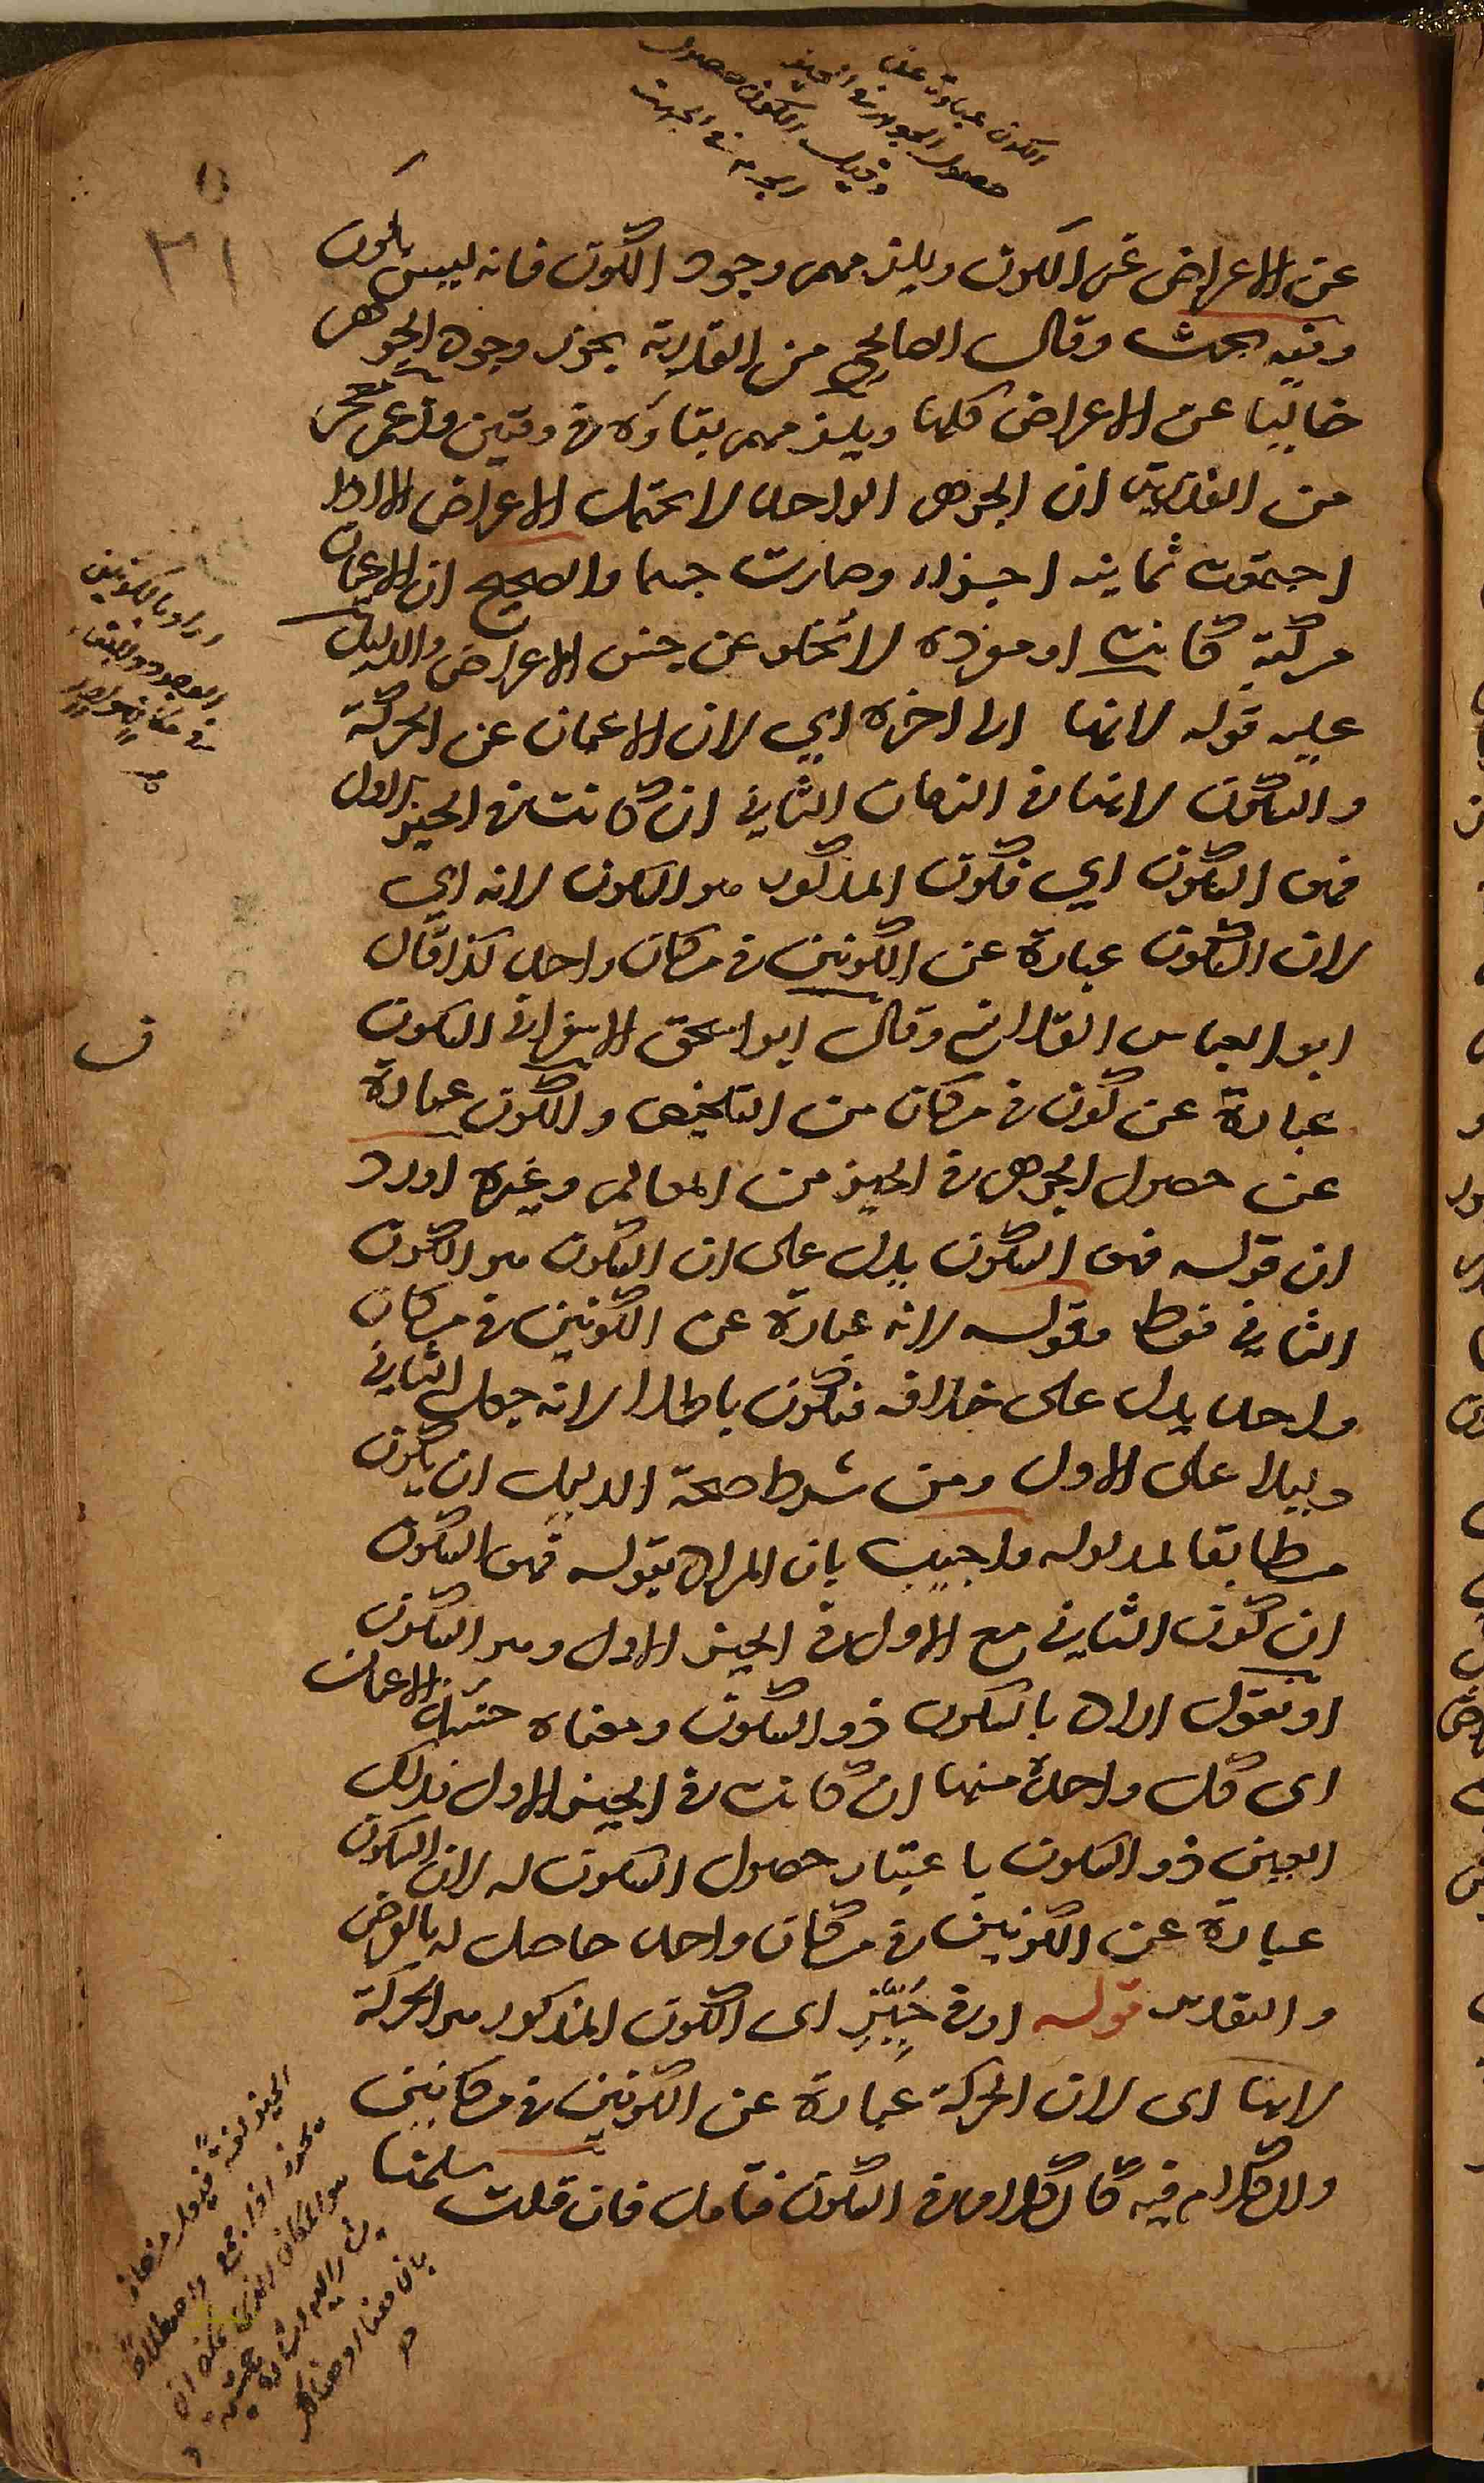 الكون عبارة عن
حصول الجوهر في الحيز
وقيل الكون حصول
الجرم في الجهة
٢١
عن الاعراض غير الكون ويلزمهم وجود الكون فانه ليس بكون
وفيه بحث وقال الصالحي من القدرية يجوز وجود الجوهر
خاليا عن الاعراض كلها ويلزمهم بقاؤه في وقتين وزعم
من القدرية ان الجوهر الواحد لا يحتمل الاعراض الا اذا
اجتمعت ثمانية اجزاء وصارت جسما والصحيح ان الاعيان
مركبة كانت او مفردة لا تخلو عن جنس الاعراض والدليل
عليه قوله لانها الى اخره اي لان الاعيان عن الحركة
والسكون لانها في الزمان الثاني ان كانت في الحيز الاول
فهو السكون اي فكون المذكور هو السكون لانه اي
لان السكون عبارة عن الكونين في مكان واحد كذا قال
ابو العباس القلانسي وقال ابو اسحق الاسفرايني السكون
عبارة عن كون في مكان من التلخيص والكون عبارة
عن حصول الجوهر في الحيز من المعالم وغيره اورد
ان قوله فهو السكون يدل على ان السكون هو الكون
الثاني فقط وقوله لانه عبارة عن الكونين في مكان
واحد يدل على خلافه فتكون باطلا لانه جعل الثاني
دليلا على الاول ومن شرط صحة الدليل ان يكون
مطابقا لمدلوله واجيب بان المراد بقوله فهو السكون
ان كون الثاني مع الاول في الحيز الاول وهو السكون
او نقول اراد بالسكون ذو السكون ومعناه حينئذ الاعيان
اى كل واحد منها ان كانت في الحيز الاول فذلك
العين ذو السكون باعتبار حصول السكون له لان السكون
عبارة عن الكونين في مكان واحد حاصل له بالفرض
والتقدير قوله او في حَيِّزٍ اى الكون المذكور هو الحركة
لانها اى لان الحركة عبارة عن الكونين في مكانين
والكلام فيه كالكلام في السكون فتأمل فان قلت سلمنا
اراد بالكونين
الوجود والبقاء
في مكان واحد
ف
الحيز لغة
يحوز اذا جمع واصطلاحا
هو المكان الذي
اليه اشارة حسية
بان هنا او هناك